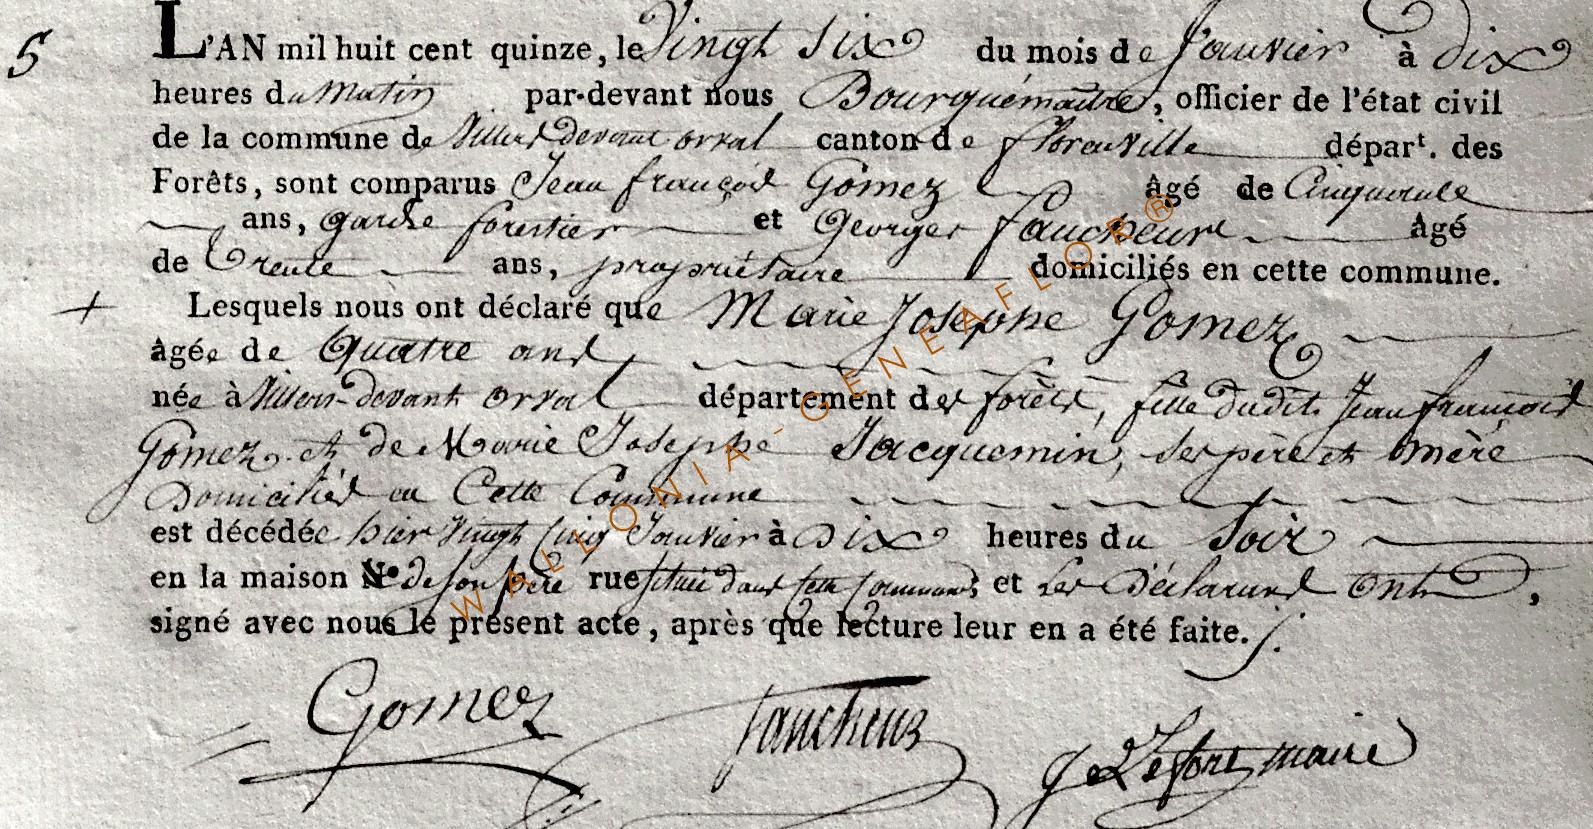 5
L'AN mil huit cent quinze, le Vingt Six du mois de Janvier à dix
heures du Matin par-devant nous Bourguémaitre, officier de l'état civil
de la commune de Villers devant orval canton de florenville départ. des
Forêts, sont comparus Jean françois Gomez âgé de Cinquante
ans, garde forestier et Georges faucheur âgé
de Trente ans, propriétaire domiciliés en cette commune.
+ Lesquels nous ont déclaré que Marie Josephe Gomez
âgée de Quatre ans
née à Villers-devant orval département des forêts, fille dudit Jean françois
Gomez et de Marie Josephe Jacquemin, ses père et mère
Domiciliés en Cette Commune
est décédée hier Vingt Cinq Janvier à Dix heures du Soir
en la maison N.º de son père rue située dans cette commune et Les Déclarans Ont,
signé avec nous le présent acte, après que lecture leur en a été faite.
Gomez faucheur Lefort maire
WALLONIA-GENEAFLOR®